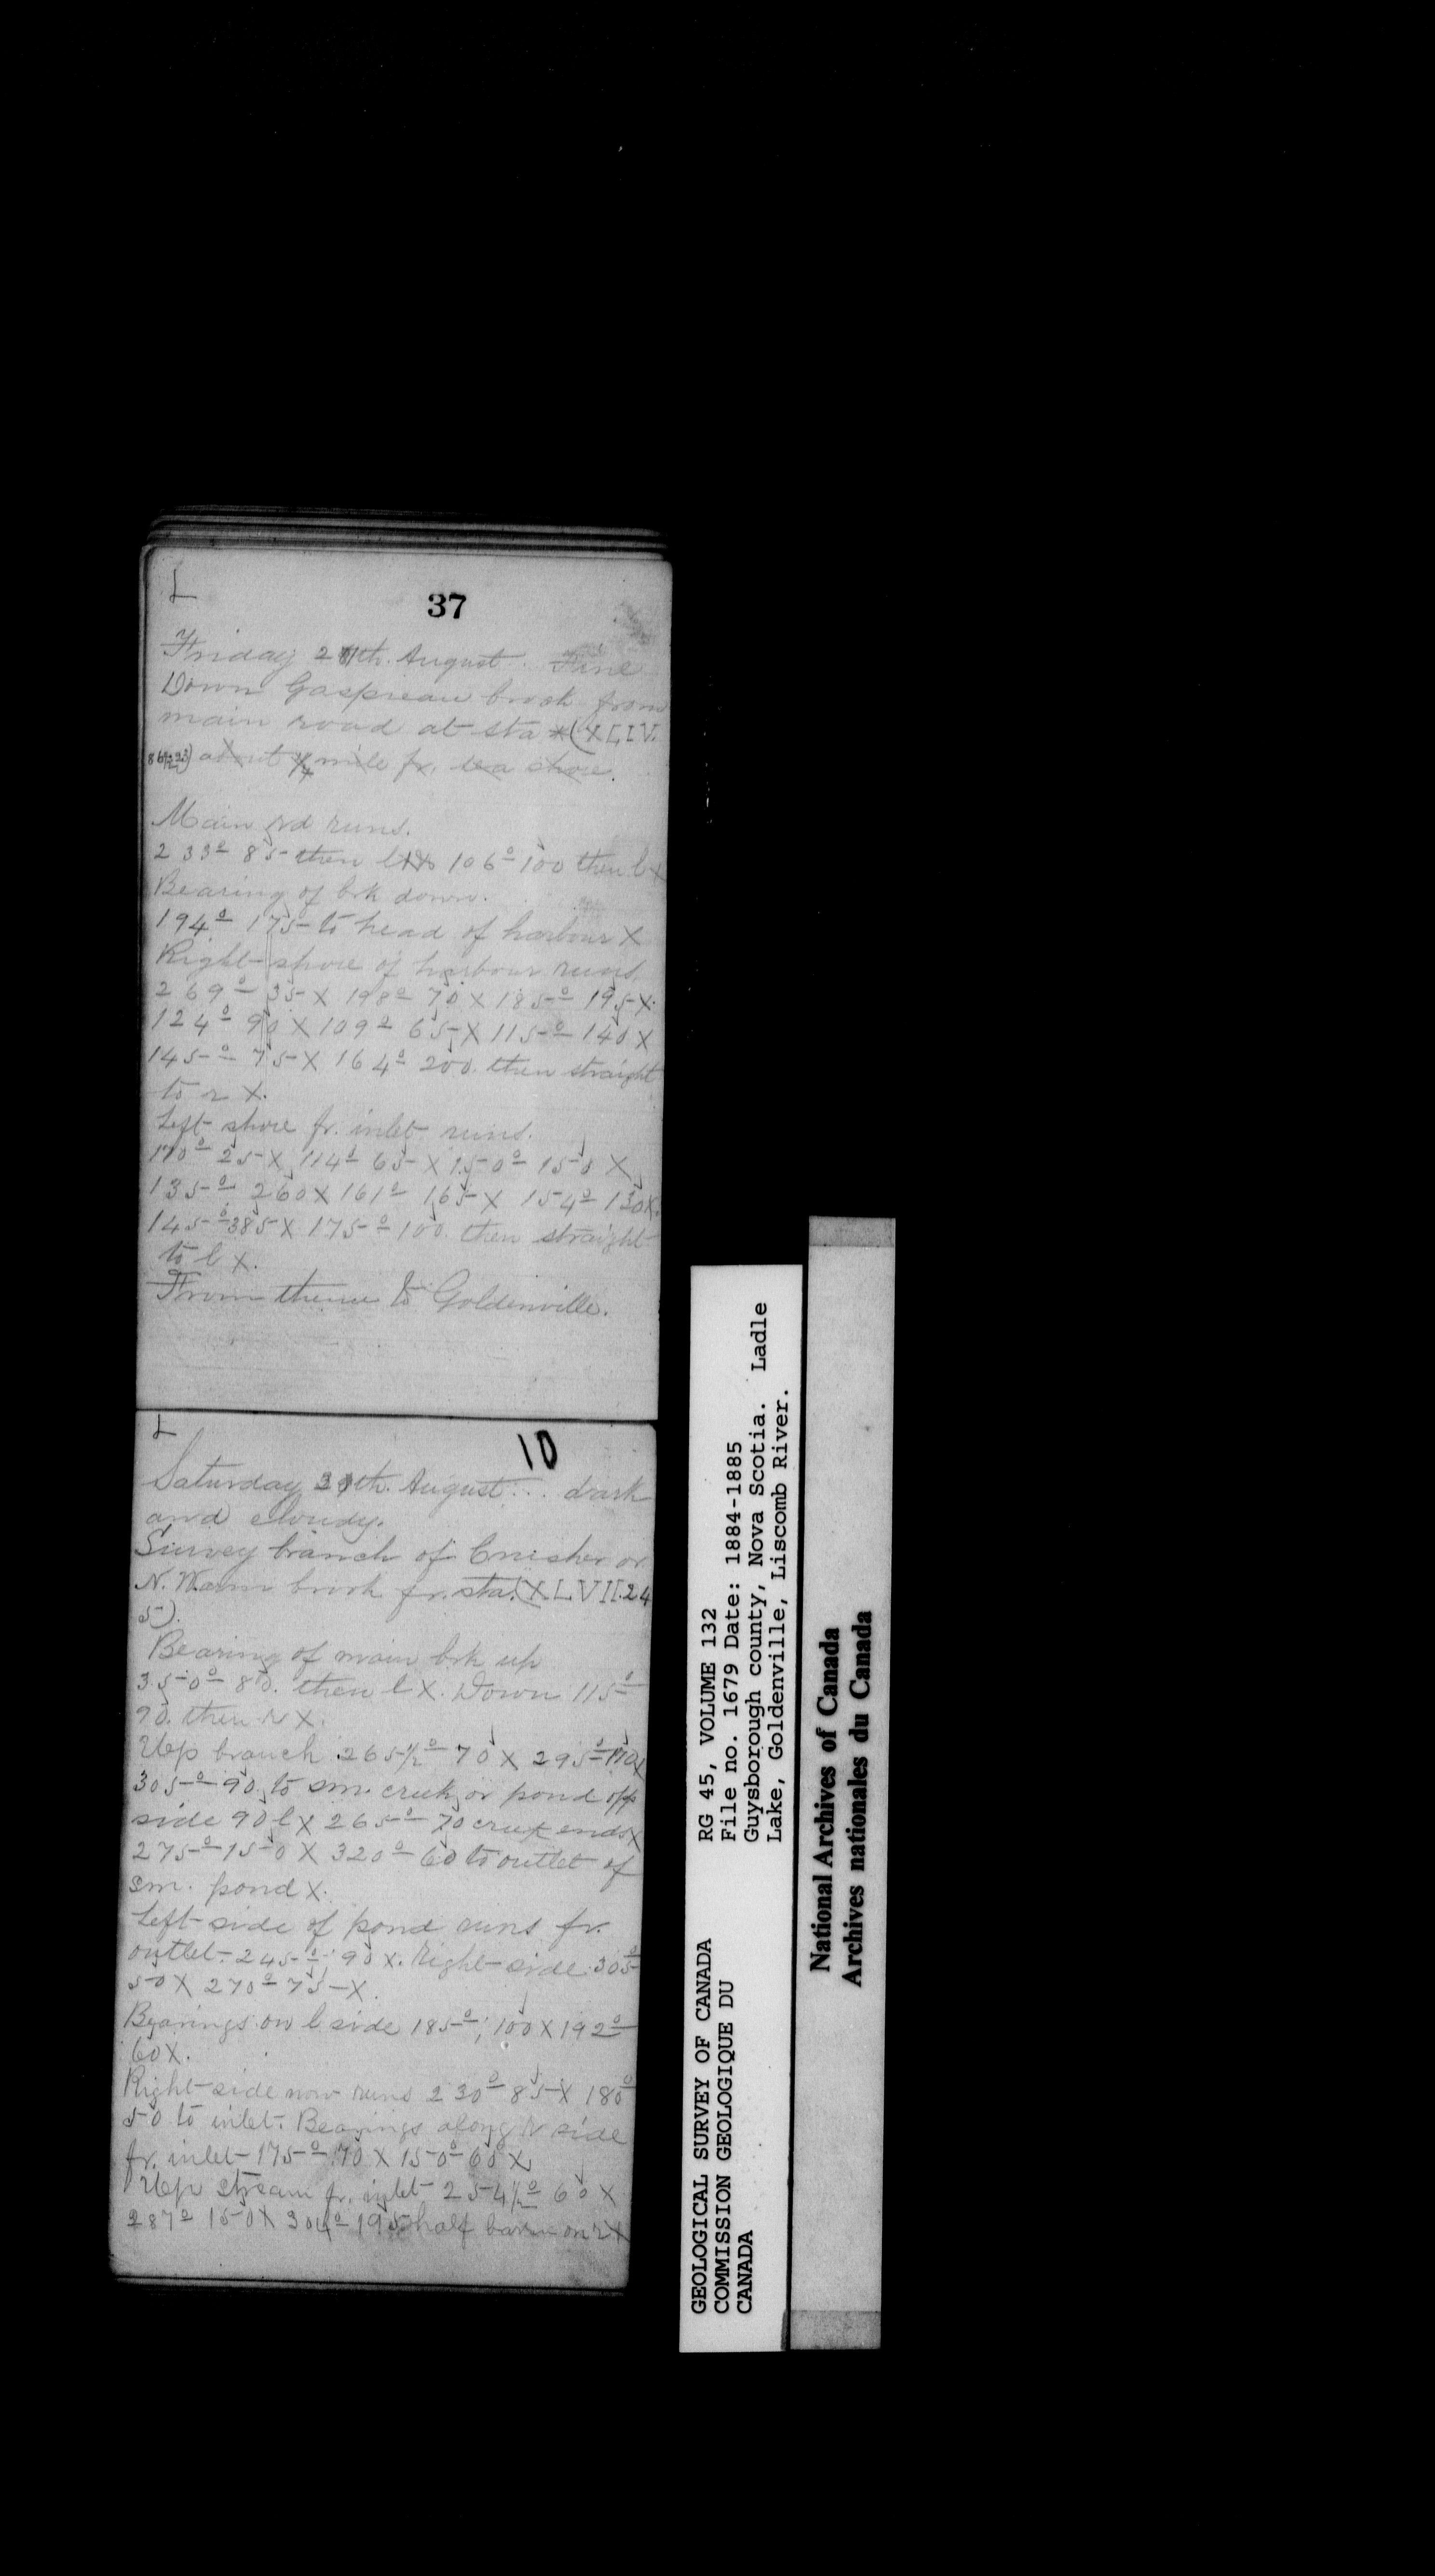 L
37
Friday 2 th. August. Fine
Down Gaspreau brook from
main road at sta * (XLIV.
about 1/4 mile fr. sea shore.
Main rd runs.
233° 85 then l X 106° 100 then l X
Bearing of brk down.
194° 175 to head of harbour X
Right shore of harbour runs
269° 35 X 198° 70 X 185° 195 X.
124° 90 X 109° 65 X 115° 140 X
145° 75 X 164° 200. then straight
to r X.
Left shore fr. inlet runs.
170° 25 X 114° 65 X 150° 150 X
135° 260 X 161° 165 X 154° 130 X.
145° 385 X 175° 100. then straight
to l X.
From thence to Goldenville.
L
10
Saturday 3 th. August... dark
and cloudy.
Survey branch of or
N. brook fr. sta. (XLVII. 24
5).
Bearing of main brk up
350° 80. then l X. Down 115°
90. then r X.
Up branch 265 1/2° 70 X 295° 170 X
305° 90 to sm. creek or pond off
side 90 l X 265° 70 creek ends X
275° 150 X 320° 60 to outlet of
sm. pond X.
Left side of pond runs fr.
outlet. 245°; 90 X. Right side 305°
50 X 270° 75 X.
Bearings on l side 185°; 100 X 192°
60 X.
Right side now runs 230° 85 X 180°
50 to inlet. Bearings along r side
fr. inlet 175° 70 X 150° 60 X
Up stream fr. inlet 254 1/2° 60 X
287° 150 X 304° 195 half barren on r X
GEOLOGICAL SURVEY OF CANADA
COMMISSION GEOLOGIQUE DU
CANADA
RG 45, VOLUME 132
File no. 1679 Date: 1884-1885
Guysborough county, Nova Scotia. Ladle
Lake, Goldenville, Liscomb River.
National Archives of Canada
Archives nationales du Canada